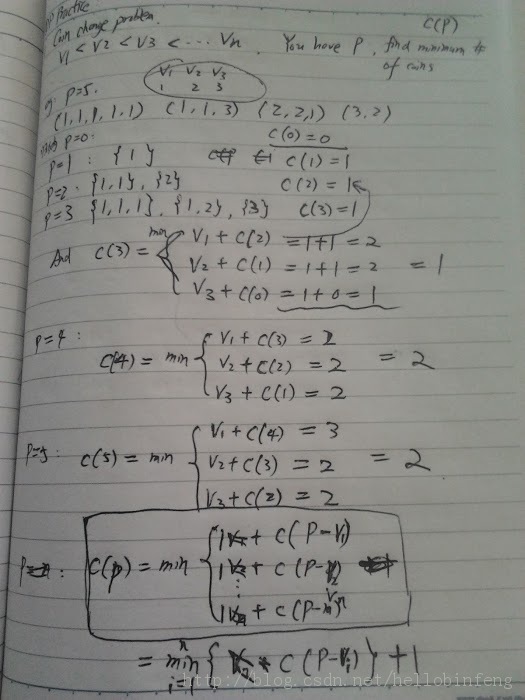 Practice
Coin change problem.
C(P)
V1 < V2 < V3 < ... Vn. You have P, find minimum #
of coins
eg: P=5.
V1 V2 V3
1 2 3
(1,1,1,1,1) (1,1,3) (2,2,1) (3,2)
P=0:
C(0)=0
P=1: {1}
C(1)=1
P=2: {1,1}, {2}
C(2)=1
P=3 {1,1,1}, {1,2}, {3}
C(3)=1
And C(3) = min { V1 + C(2) = 1+1 = 2
V2 + C(1) = 1+1 = 2 = 1
V3 + C(0) = 1+0 = 1
P=4:
C(4) = min { V1 + C(3) = 2
V2 + C(2) = 2 = 2
V3 + C(1) = 2
P=5: C(5) = min { V1 + C(4) = 3
V2 + C(3) = 2 = 2
V3 + C(2) = 2
C(p) = min { 1 + C(P-V1)
1 + C(P-V2)
⋮
1 + C(P-Vn)
= min i=1 n { C(P-Vi) } + 1
http://blog.csdn.net/hellobinfeng